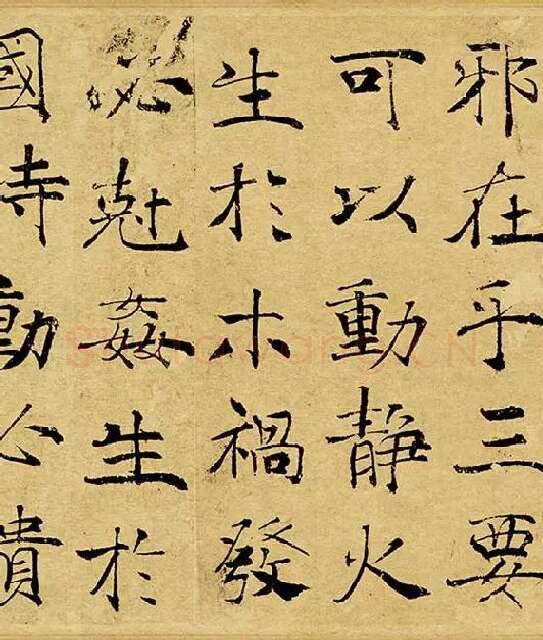 邪在乎三要
可以動靜火
生於木禍發
必尅姦生於
國時動必潰
Shufawang.CN